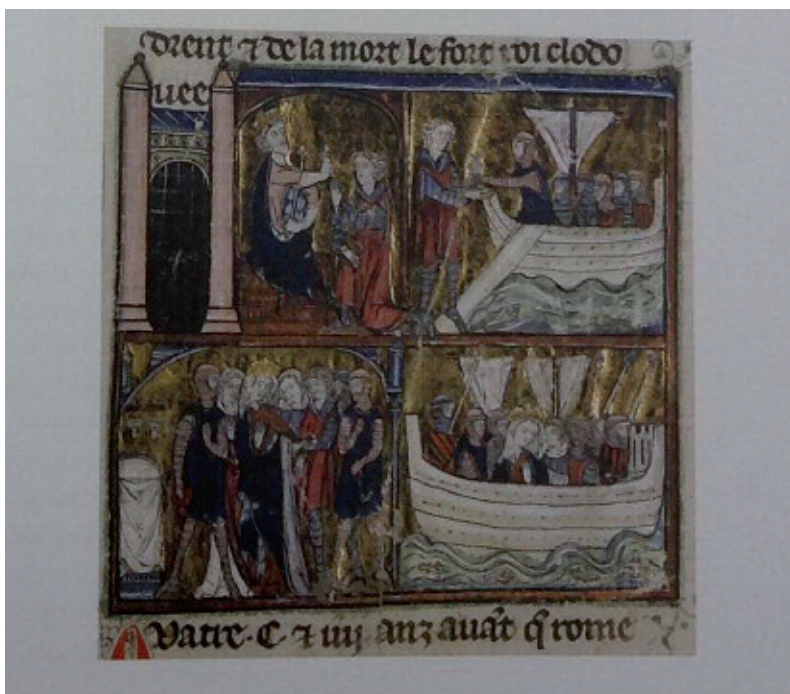 drent ⁊ de la mort le fort roi clodo
uee
Vatre · C · ⁊ iiij anz auāt q̄ rome